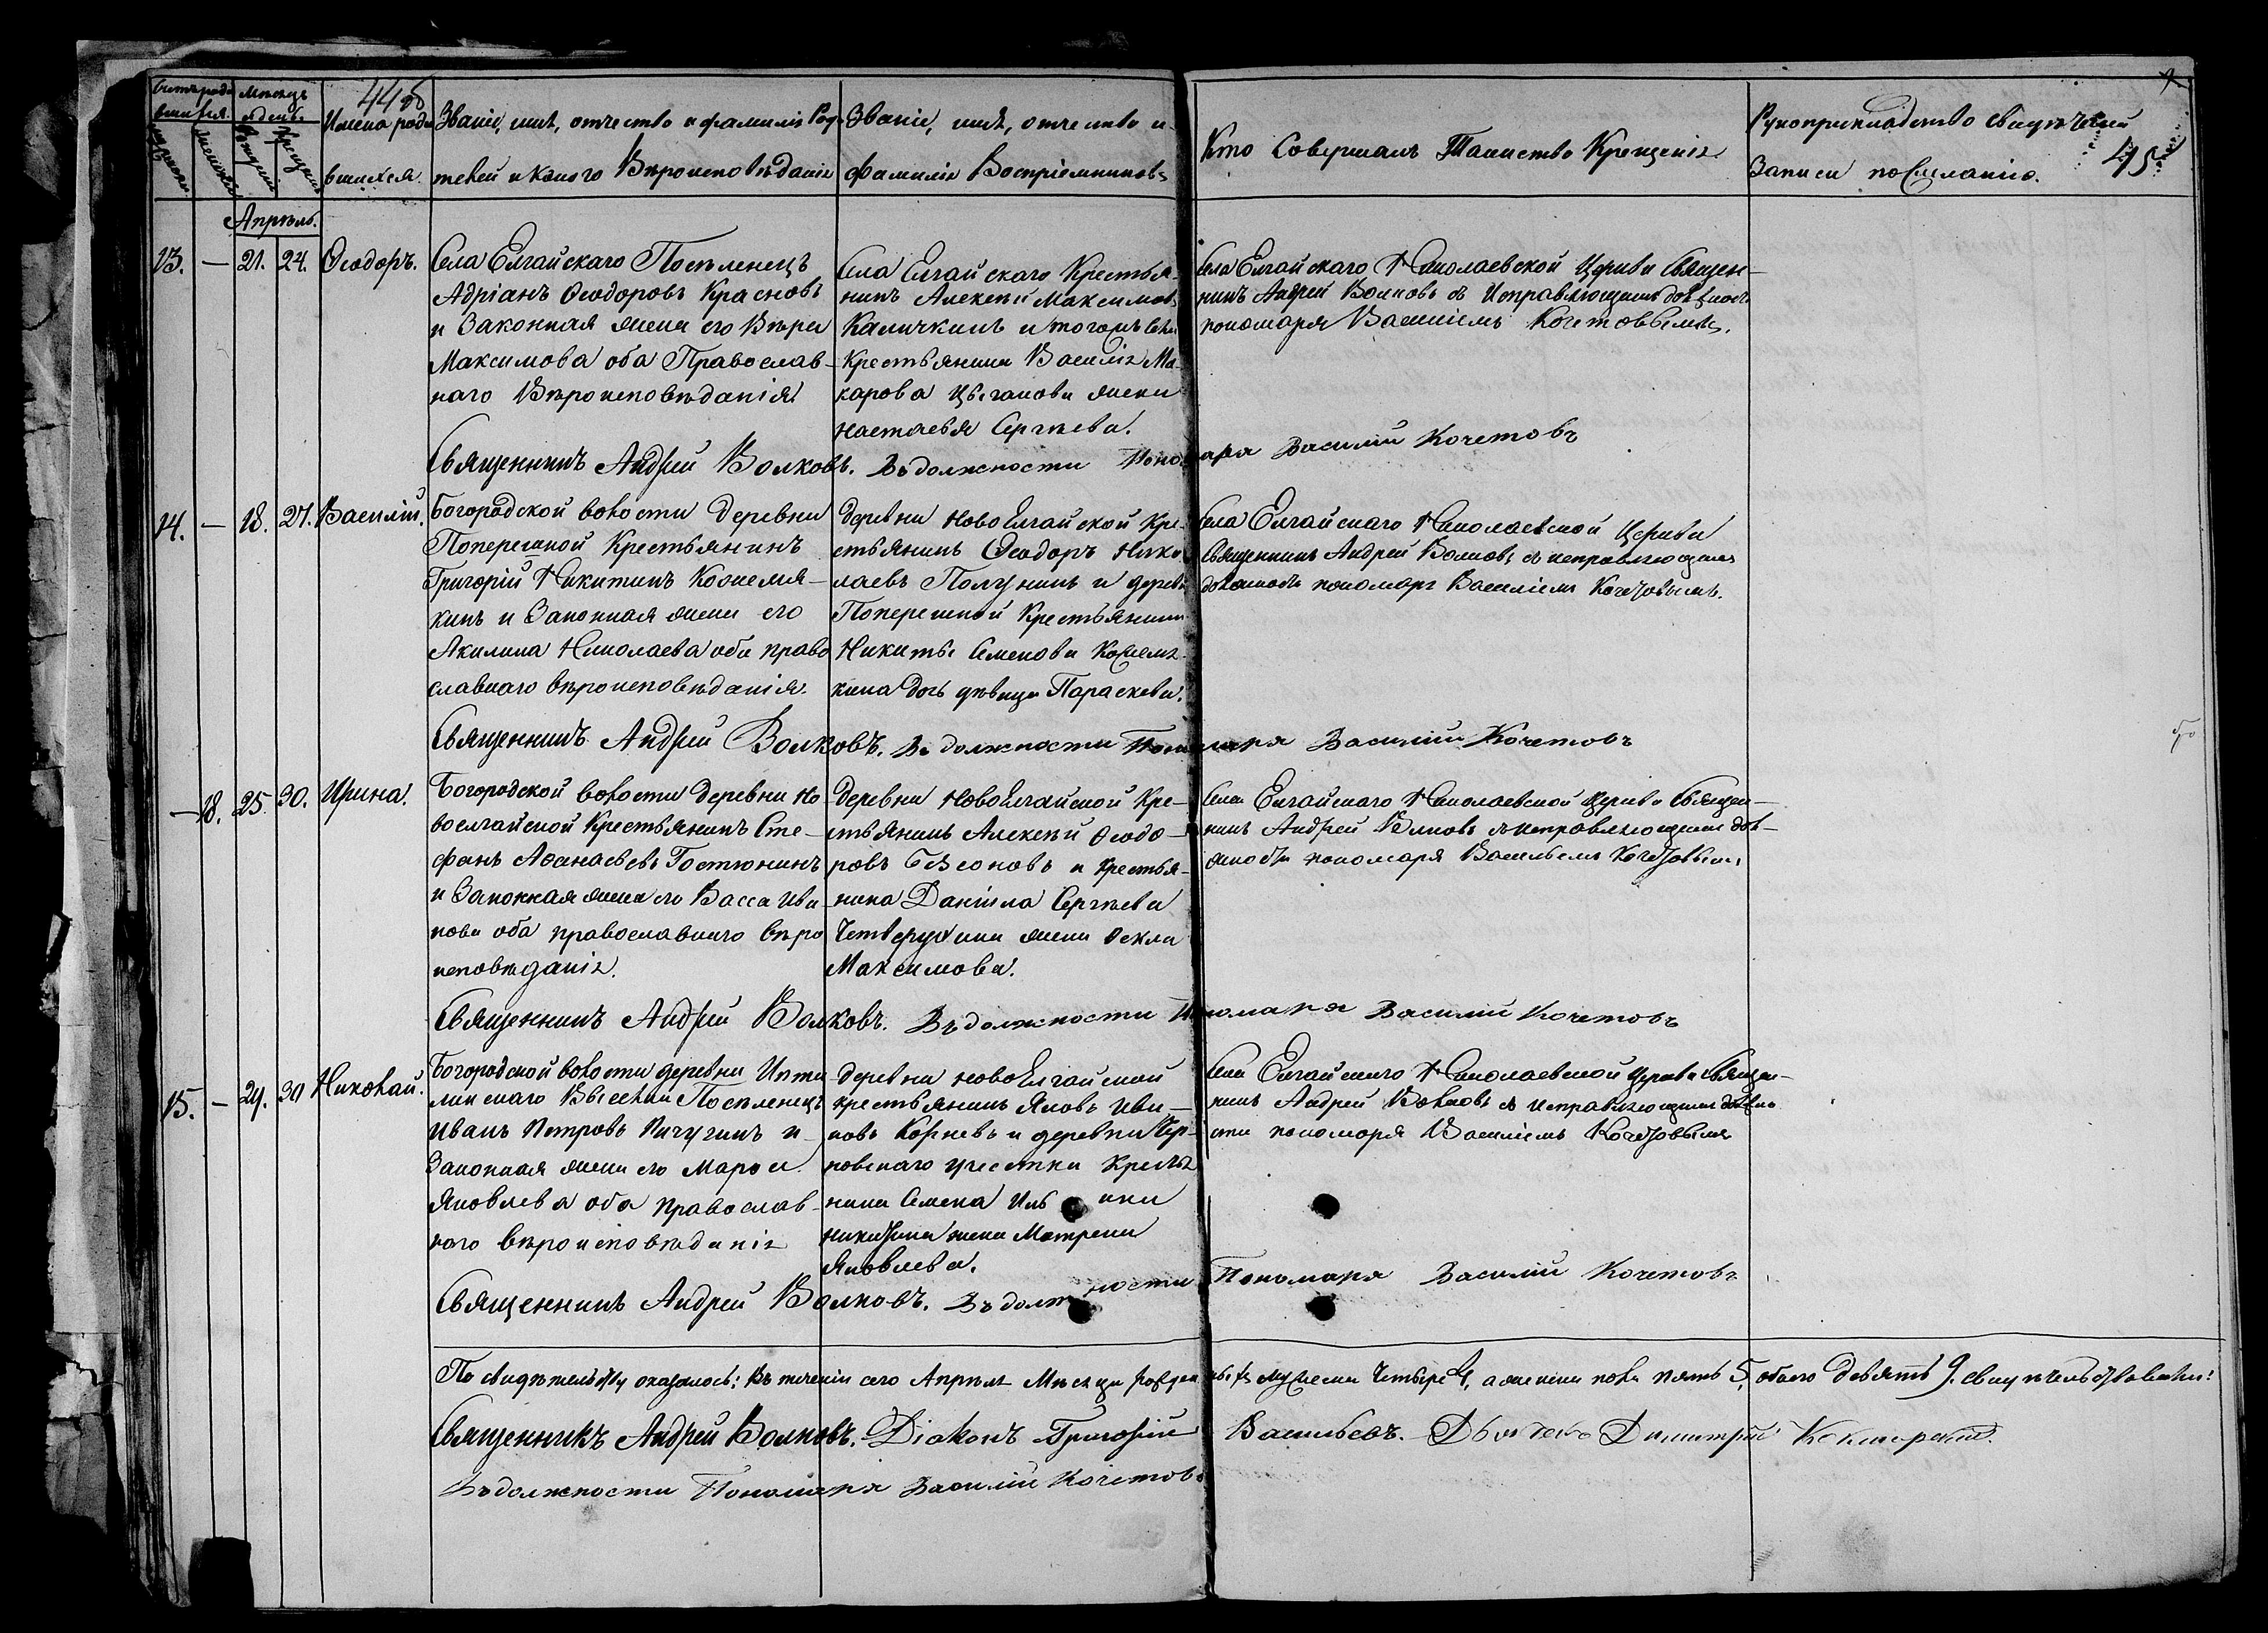 44об
45
Счетъ роди
вшихся.
Мѣсяцъ
и день.
Имена роди
вшихся.
Званіе, имя, отчество и фамилія Роди
телей и какого Вѣроисповѣданія
Званіе, имя, отчество и
фамилія Воспріемниковъ
Кто Совершалъ Таинство Крещенія
Рукоприкладство свидѣтелей
Записи по желанію.
Апрѣль.
13. — 21. 24. Ѳеодоръ.
Села Елгайскаго Поселенецъ
Адріанъ Ѳеодоровъ Красновъ
и Законная жена его Вѣра
Максимова оба Православ-
наго Вѣроисповѣданія
Села Елгайскаго Крестья-
нинъ Алексѣй Максимовъ
Каличкинъ и тогожъ села
Крестьянина Василія Ма-
карова Цыганова жена
Настасья Сергѣева.
Села Елгайскаго Николаевской Церкви Священ-
никъ Андрей Волковъ съ Исправляющимъ должность
пономаря Василіемъ Кочетовымъ.
Священникъ Андрей Волковъ. Въ должности Пономаря Василий Кочетовъ
14. — 18. 27. Василій.
Богородской волости деревни
Поперешной Крестьянинъ
Григорій Никитинъ Кожемя-
кинъ и Законная жена его
Акилина Николаева оба право
славнаго вѣроисповѣданія.
деревни НовоЕлгайской Кре-
стьянинъ Ѳеодоръ Нико
лаевъ Полунинъ и деревни
Поперешной Крестьянина
Никиты Семенова Кожемя-
кина дочь дѣвица Параскева.
Села Елгайскаго Николаевской Церкви
Священникъ Андрей Волковъ съ исправляющимъ
должность пономаря Василіемъ Кочетовымъ.
Священникъ Андрей Волковъ. Въ должности Пономаря Василий Кочетовъ
— 18. 25. 30. Ирина.
Богородской волости деревни Но
воелгайской Крестьянинъ Сте-
фанъ Аѳанасьевъ Гостюнинъ
и Законная жена его Васса Ива
нова оба православнаго вѣро
исповѣданія.
Деревни НовоЕлгайской Кре-
стьянинъ Алексѣй Ѳеодо-
ровъ и Крестья-
нина Даніила Сергѣева
Четверухина жена Ѳекла
Максимова.
Села Елгайскаго Николаевской Церкви Священ-
никъ Андрей Волковъ съ исправляющимъ дол-
жность пономаря Васильемъ Кочетовымъ
Священникъ Андрей Волковъ. Въ должности Пономаря Василий Кочетовъ
15. — 29. 30 Николай.
Богородской волости деревни
Поселенецъ
Иванъ Петровъ Пичугинъ и
Законная жена его Марѳа
Яковлева оба православ-
наго вѣроисповѣданія
деревни НовоЕлгайской
крестьянинъ Яковъ Ива-
новъ Корневъ и деревни Чер-
новскаго участка Крестья
нина Семена
Никитина жена Матрена
Яковлева.
Села Елгайскаго Николаевской Церкви Священ-
никъ Андрей Волковъ съ исправляющимъ должно
сти пономаря Василіемъ Кочетовымъ
Священникъ Андрей Волковъ. Въ должности Пономаря Василий Кочетовъ
По свидѣтельству оказалось: Въ теченіи сего Апрѣля Мѣсяца рожденныхъ мужеска Четыре 4, а женска пола пять 5, обоего девять 9. свидѣтельствовали:
Священникъ Андрей Волковъ. Діаконъ Григорій Васильевъ. Дьячекъ Димитрій
Въ должности Пономаря Василий Кочетовъ